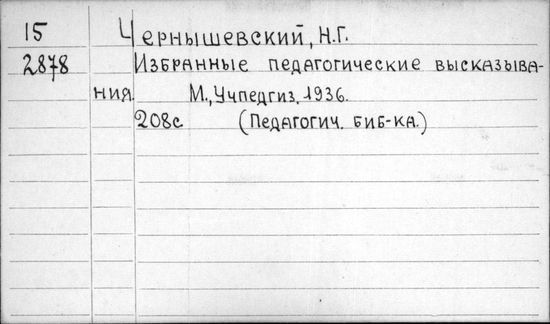 15 Чернышевский, Н.Г.
2878 Избранные педагогические высказыва-
ния. М., Учпедгиз, 1936.
208с. (Педагогич. биб-ка.)